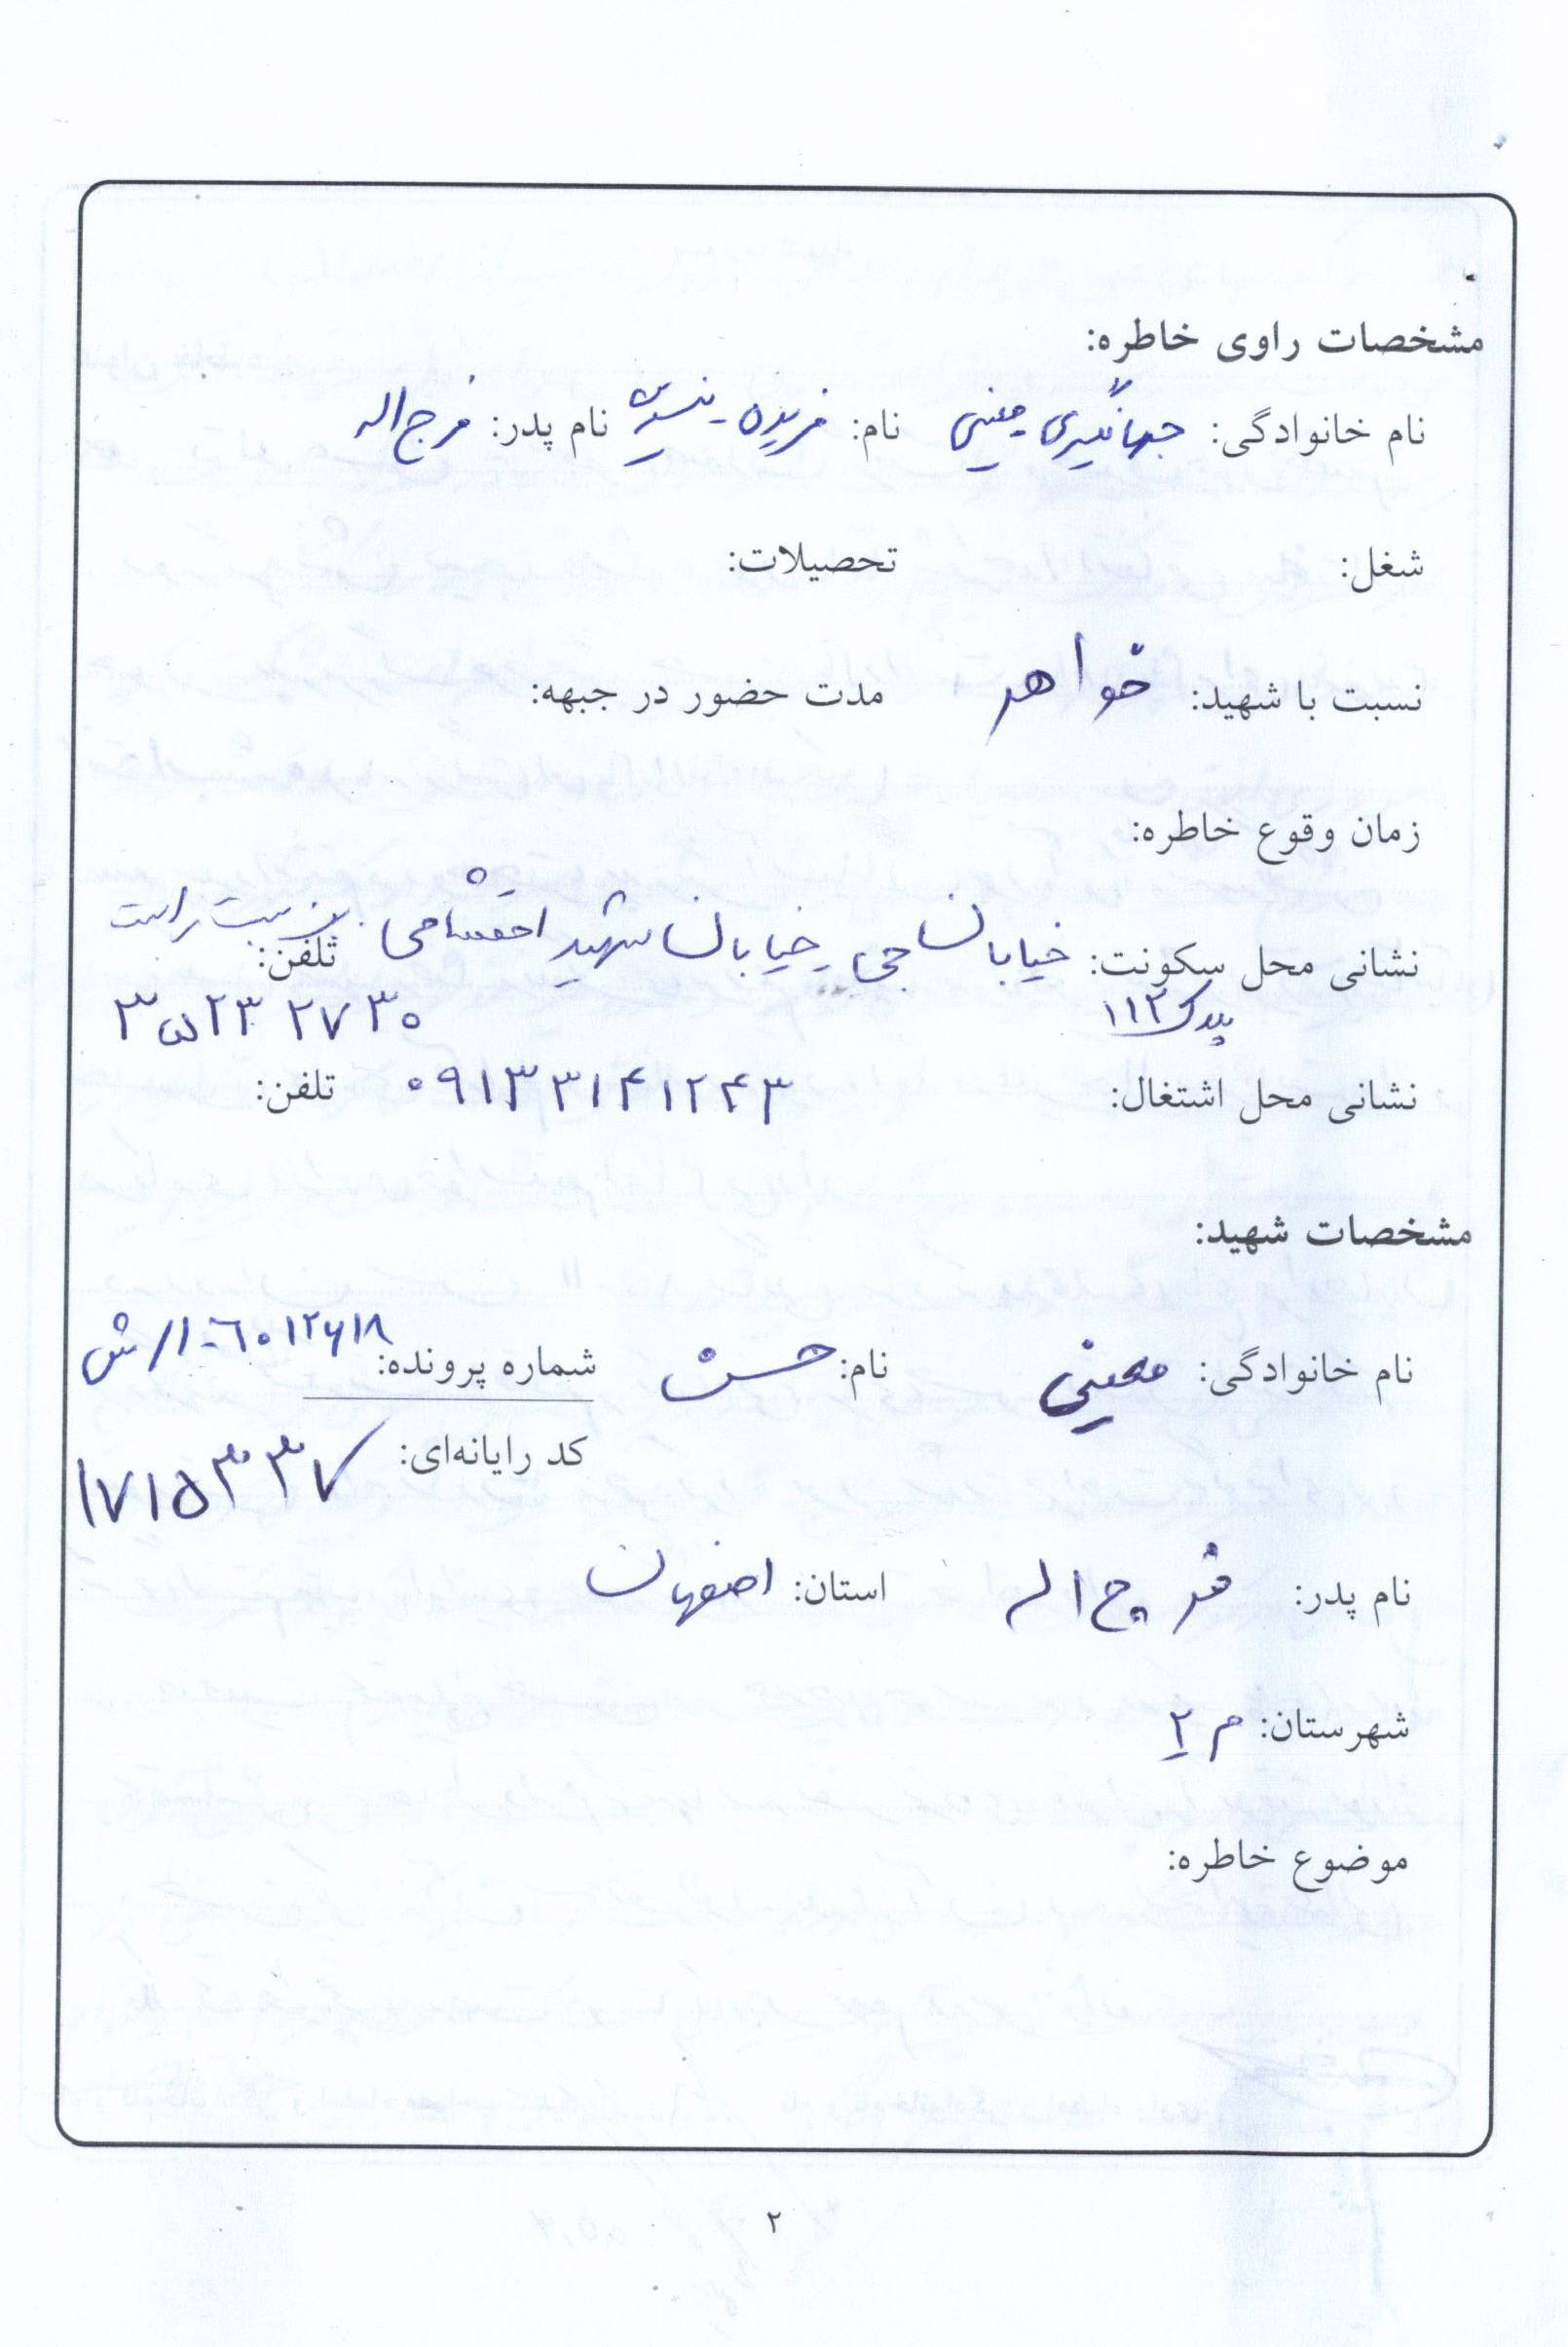 مشخصات راوی خاطره:
نام خانوادگی: جهانگیری معینی نام: فریده - نسرین نام پدر: فرج اله
شغل: تحصیلات:
نسبت با شهید: خواهر مدت حضور در جبهه:
زمان وقوع خاطره:
نشانی محل سکونت: خیابان جی - خیابان شهید احتشامی بن بست راست تلفن:
پلاک ۱۱۲ ۳۵۲۳۲۷۳۰
نشانی محل اشتغال: ۰۹۱۳۳۱۴۱۲۴۳ تلفن:
مشخصات شهید:
نام خانوادگی: معینی نام: حسن شماره پرونده: ۱۰۶۰۱۲۶۱۸/ش
کد رایانه‌ای: ۱۷۱۵۳۳۷
نام پدر: فرج اله استان: اصفهان
شهرستان: م ۲
موضوع خاطره:
۲